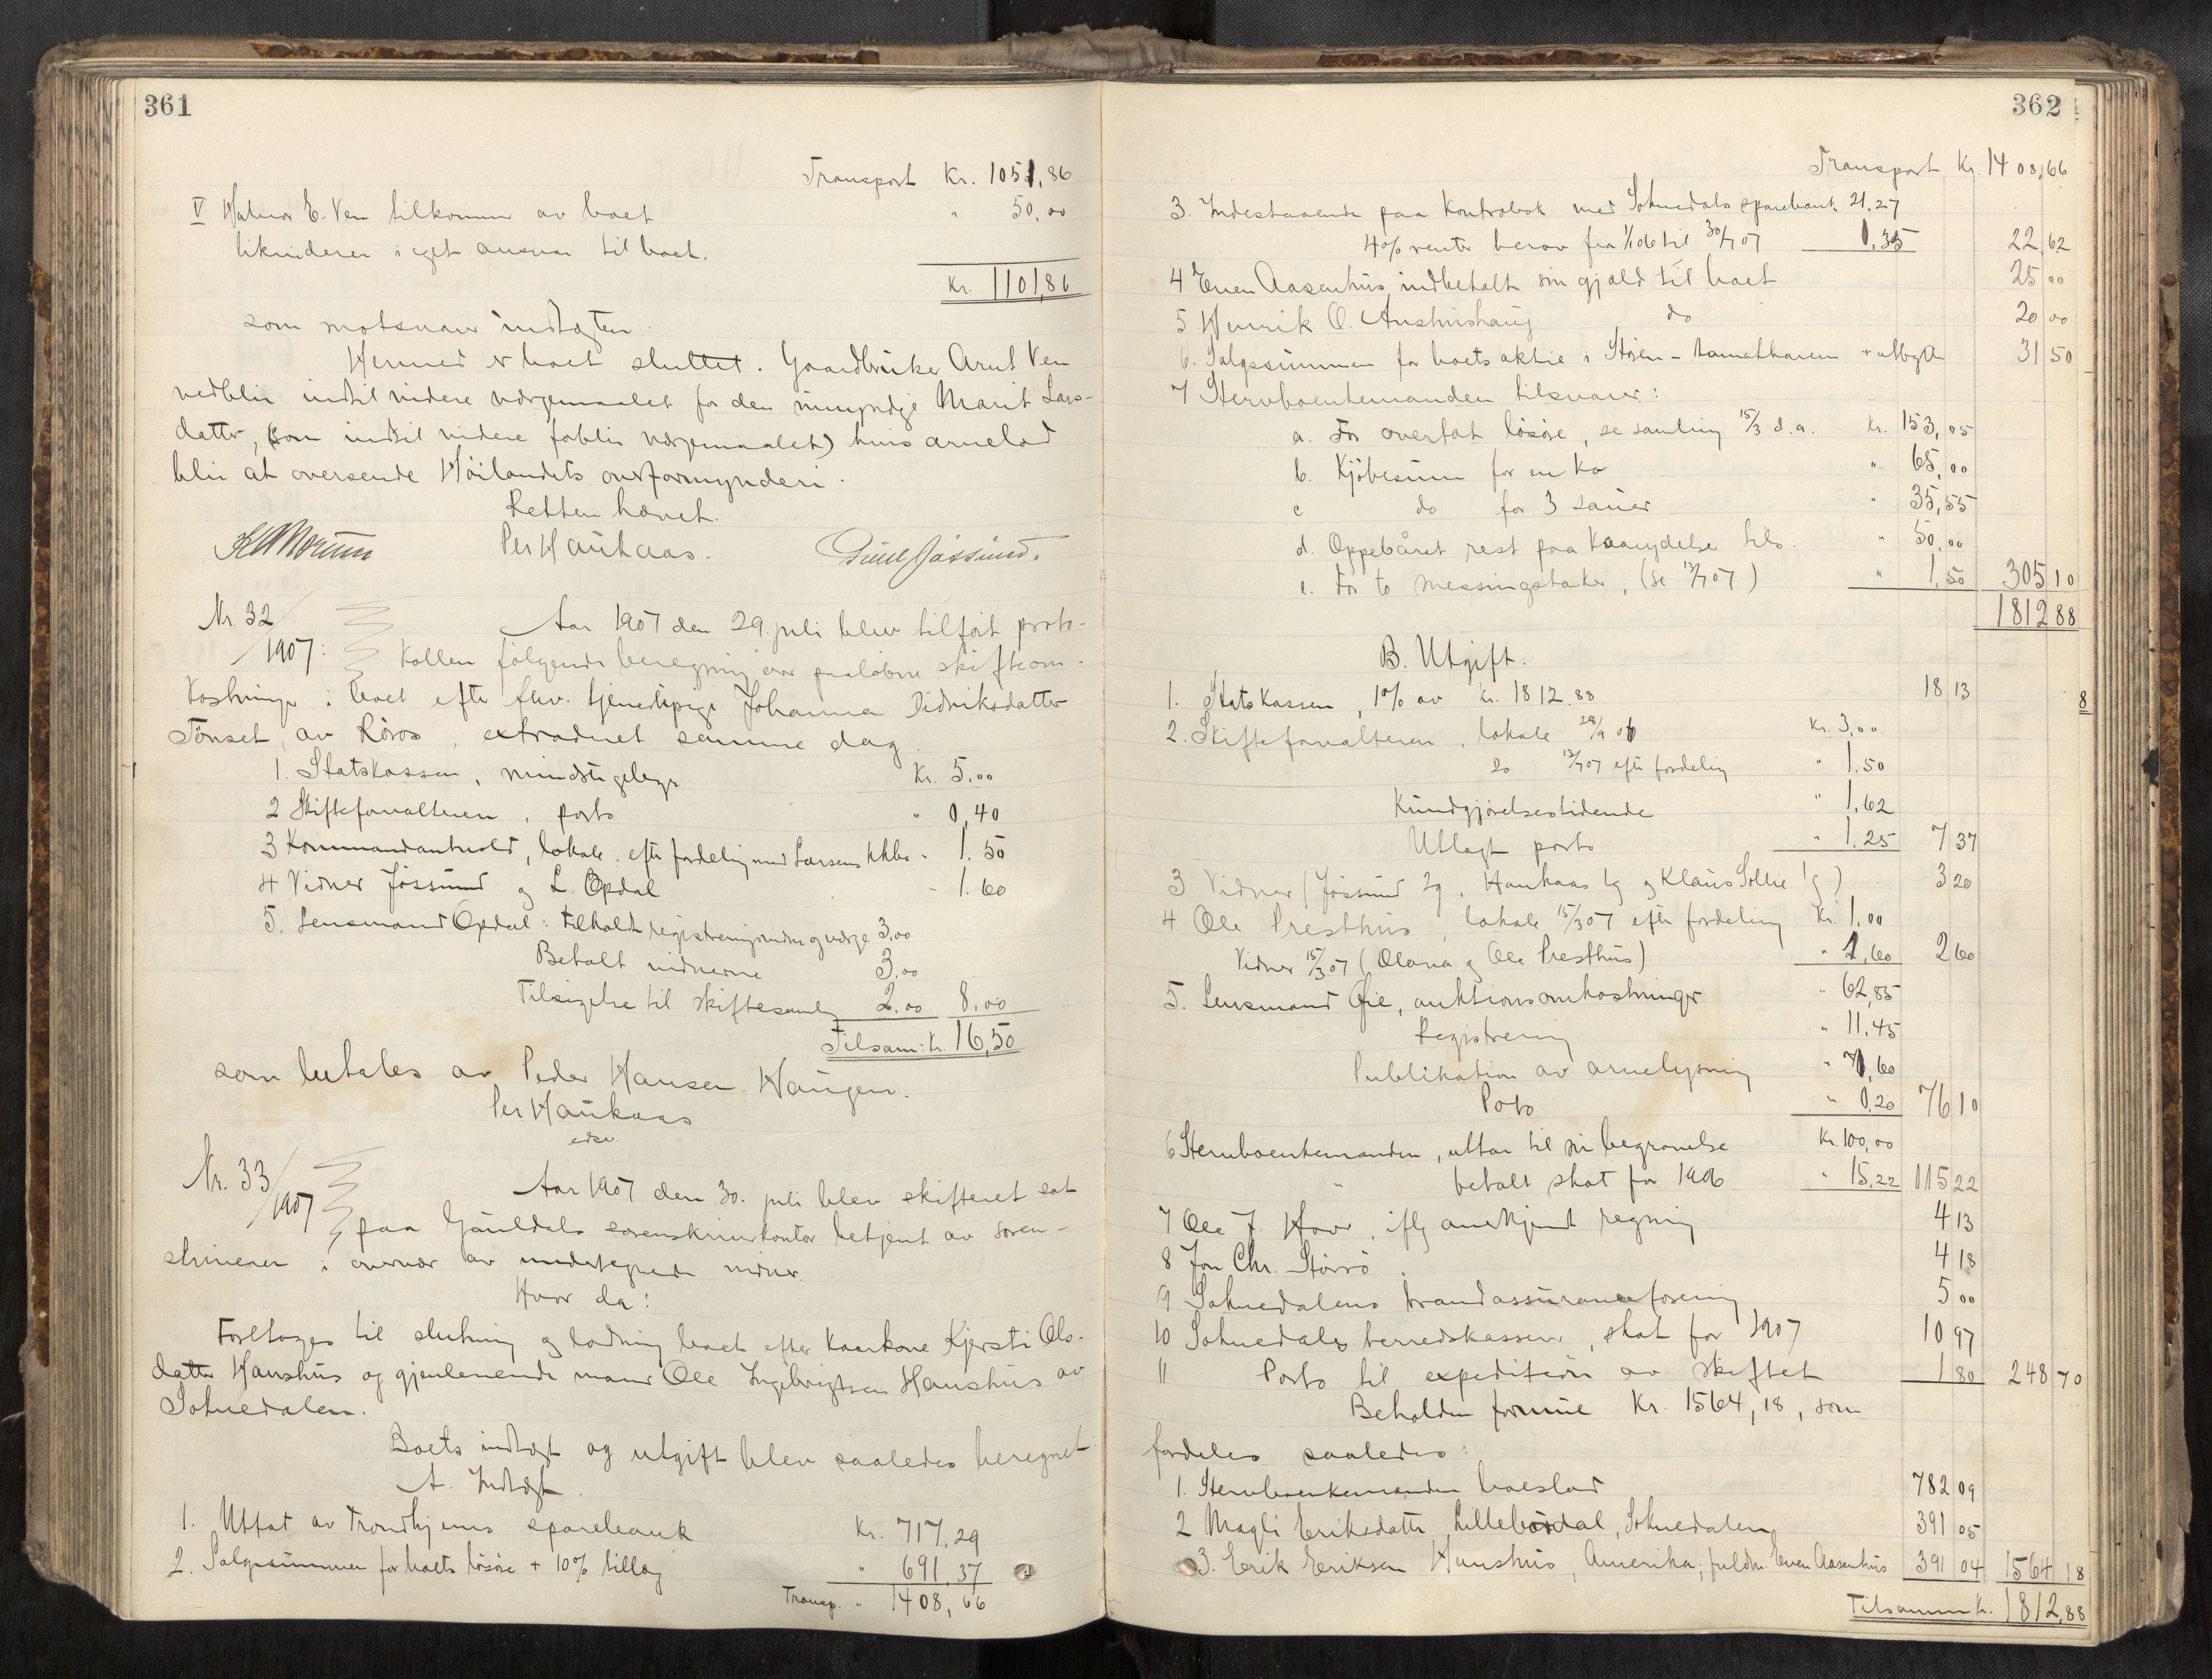 361
Transport Kr. 1051,86
V Halvor E. Ven tilkommer av boet " 50,00
likviderer i eget ansvar til boet.
Kr. 1101,86
som motsvarer indtægten.
Hermed er boet sluttet. Gaardbruker Arnt Ven
vedblir indtil videre værgemaalet for den umyndige Marit Lars-
datter, (som indtil videre forblir værgemaalet) hvis arvelod
blir at oversende Höilandets overformynderi.
Retten hævet.
Per Haukaas. Jössund.
Nr. 32
/1907:
Aar 1907 den 29. juli blev tilført proto-
kollen følgende beregning over paaløbne skifteom-
kostninger i boet efter fhv. tjenestepige Johanna Didriksdatter
Tönset, av Röros, extraderet samme dag.
1. Statskassen, mindste gebyr Kr. 5,00
2 Skifteforvalteren, porto " 0,40
3 Kommandantvold, lokale, efter fordeling med Larsens kkbo " 1.50
4 Vidner Jössund og L. Opdal " 1.60
5. Lensmand Opdal: tilkaldt registreringsvidner og værge 3,00
Betalt vidnerne 3,00
Tilsigelse til skiftesamling 2.00 8,00
Tilsam: Kr. 16,50
som betales av Peder Hansen Haugen.
Per Haukaas
edsv.
Nr. 33/
/1907
Aar 1907 den 30. juli blev skifteret sat
paa Gauldals sorenskriverkontor betjent av soren-
skriveren i overvær av undertegnede vidner.
Hvor da:
Foretoges til slutning og lodning boet efter kaarkone Kjersti Ols-
datter Haushus og gjenlevende mand Ole Ingebrigtsen Haushus av
Soknedalen.
Boets indtægt og utgift blev saaledes beregnet
A. Indtægt.
1. Uttat av Trondhjems sparebank Kr. 717,29
2. Salgssummen for boets løsöre + 10% tillæg " 691,37
Transp. " 1408,66
362
Transport Kr. 1408,66
3. Indestaaende paa Kontrabok med Soknedals sparebank 21.27
4% renter herav fra 1/1 06 til 30/7 07 1,35 22,62
4 Even Aasenhus indbetalt sin gjæld til boet 25 00
5 Henrik O. Aushushaug do 20 00
6. Salgssummen for boets aktie i Stören - + utbytte 31 50
7 Stervboenkemanden tilsvarer:
a. For overtat løsöre, se samling 15/3 d.a. Kr. 153,05
b. Kjöbesum for en ko " 65,00
c do for 3 sauer " 35,55
d. Oppebåret rest paa Kaarydelse tils. " 50,00
e. For to messingstaker, (se 13/7 07) " 1,50 305 10
1812 88
B. Utgift.
1. Statskassen, 1% av Kr. 1812.88 18 13
8
2. Skifteforvalteren, lokale 28/9 06 Kr. 3,00
do 13/7 07 efter fordeling " 1.50
Kundgjørelsestidende " 1,62
Utlagt porto " 1.25 7 37
3 Vidner (Jössund 2g, Haukaas 1g og Klaus Sollie 1g) 3 20
4 Ole Presthus, lokale 15/3 07 efter fordeling Kr. 1,00
Vidner 15/3 07 (Olava og Ole Presthus) " 1,60 2 60
5. Lensmand Øie, auktionsomkostninger " 62,85
Registrering " 11.45
Publikation av arvelysning " 1,60
Porto " 0.20 76 10
6 Stervboenkemanden, uttar til sin begravelse Kr. 100,00
" betalt skat for 1906 " 15,22 115 22
7 Ole J. Hov, iflg anerkjendt regning 4 13
8 Jon Chr. Störrö. 4 18
9 Soknedalens brandassuranceforening 5 00
10 Soknedals herredskasse, skat for 1907 10 97
11 Porto til expedition av skiftet 1 80 248 70
Beholden formue Kr. 1564,18, som
fordeles saaledes:
1. Stervboenkemanden boeslod 782 09
2 Magli Eriksdatter Lillebordal, Soknedalen 391 05
3. Erik Eriksen Haushus, Amerika; fuldm. Even Aasenhus 391 04 1564 18
Tilsammen Kr. 1812,88